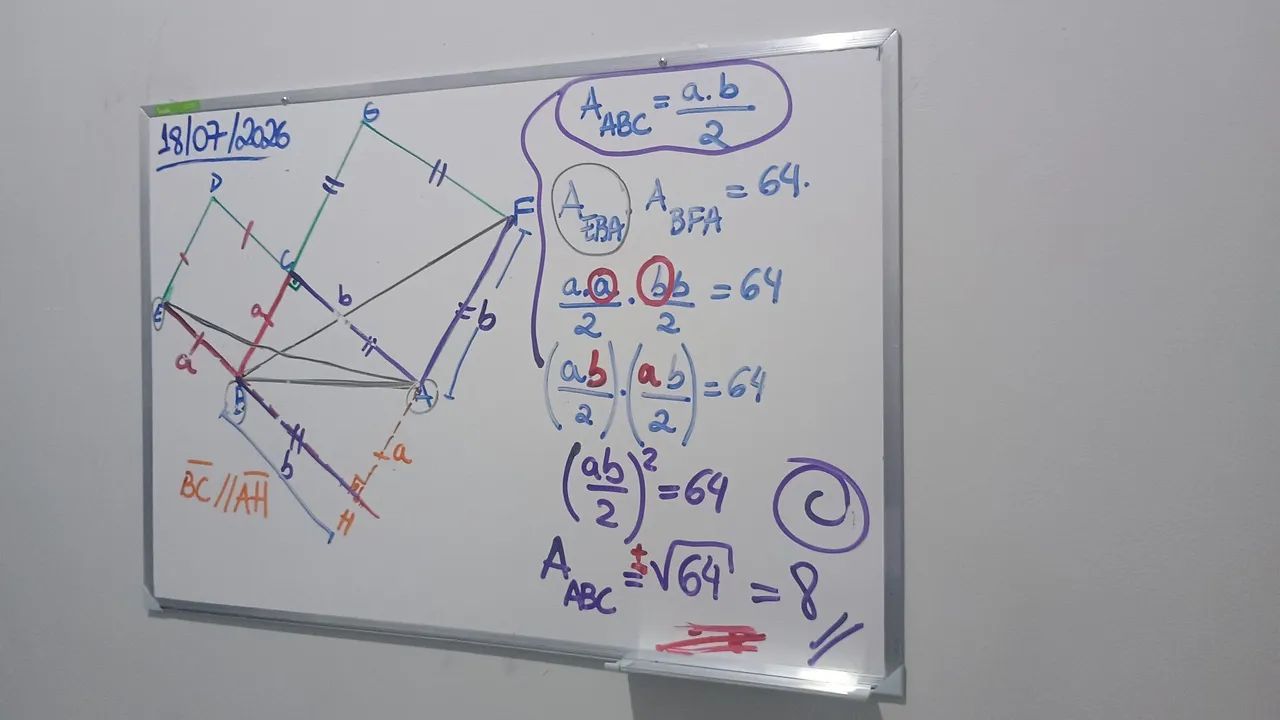 18/07/2026
G
D
F
C
b
a
E
b
a
B
A
b
a
H
BC // AH
A_ABC = a.b/2
A_EBA . A_BFA = 64.
a.a/2 . bb/2 = 64
(ab/2).(ab/2) = 64
(ab/2)² = 64
C
A_ABC = ±√64 = 8